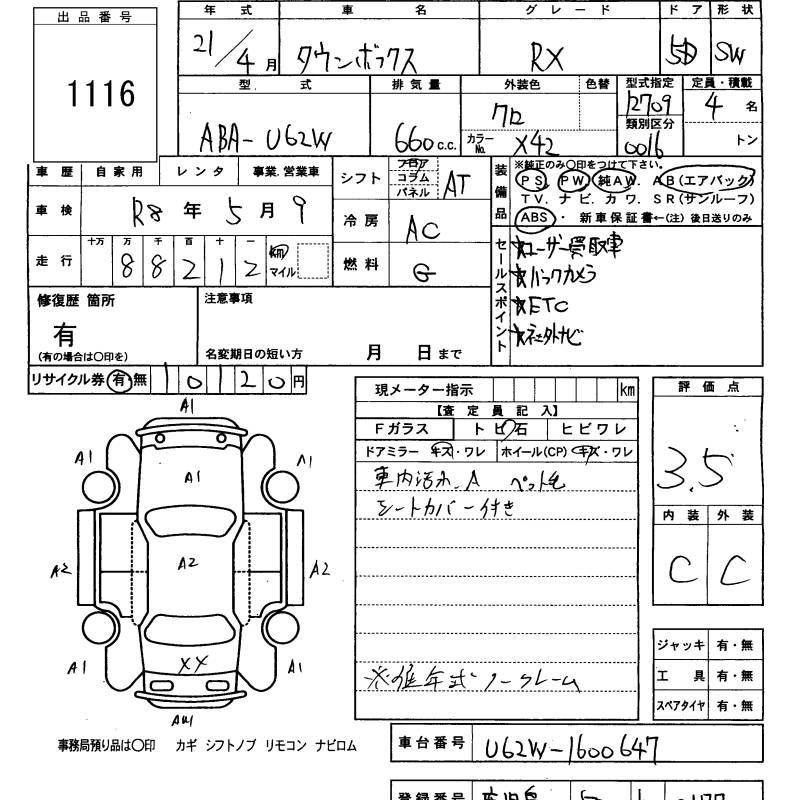 出品番号
1116
年式 車名 グレード ドア 形状
21/4月 タウンボックス RX 5D SW
型式 排気量 外装色 色替 型式指定 定員・積載
ABA-U62W 660c.c. クロ カラーNo. X42 12709 類別区分 0016 4名 トン
車歴 自家用 レンタ 事業.営業車
車検 R8年5月9
走行 十万 万 千 百 十 一
88212 km マイル
シフト フロア コラム パネル AT
冷房 AC
燃料 G
装備品
※純正のみ○印をつけて下さい。
PS PW 純AW. AB(エアバック)
TV. ナビ. カワ. SR(サンルーフ)
ABS・ 新車保証書←(注)後日送りのみ
セールスポイント
★ユーザー買取車
★バックカメラ
★ETC
★社外ナビ
修復歴 箇所
有
(有の場合は○印を)
注意事項
名変期日の短い方 月 日まで
リサイクル券 有・無 10120円
現メーター指示 km
【査定員記入】
Fガラス トビ石 ヒビワレ
ドアミラー キズ・ワレ ホイール(CP) キズ・ワレ
車内汚れ.A ペット毛
シートカバー付き
※低年式 ノークレーム
評価点
3.5
内装 外装
C C
ジャッキ 有・無
工具 有・無
スペアタイヤ 有・無
A1
A1 A1 A1
A2 A2 A2
A1 XX A1
AW1
事務局預り品は○印 カギ シフトノブ リモコン ナビロム
車台番号 U62W-1600647
登録番号